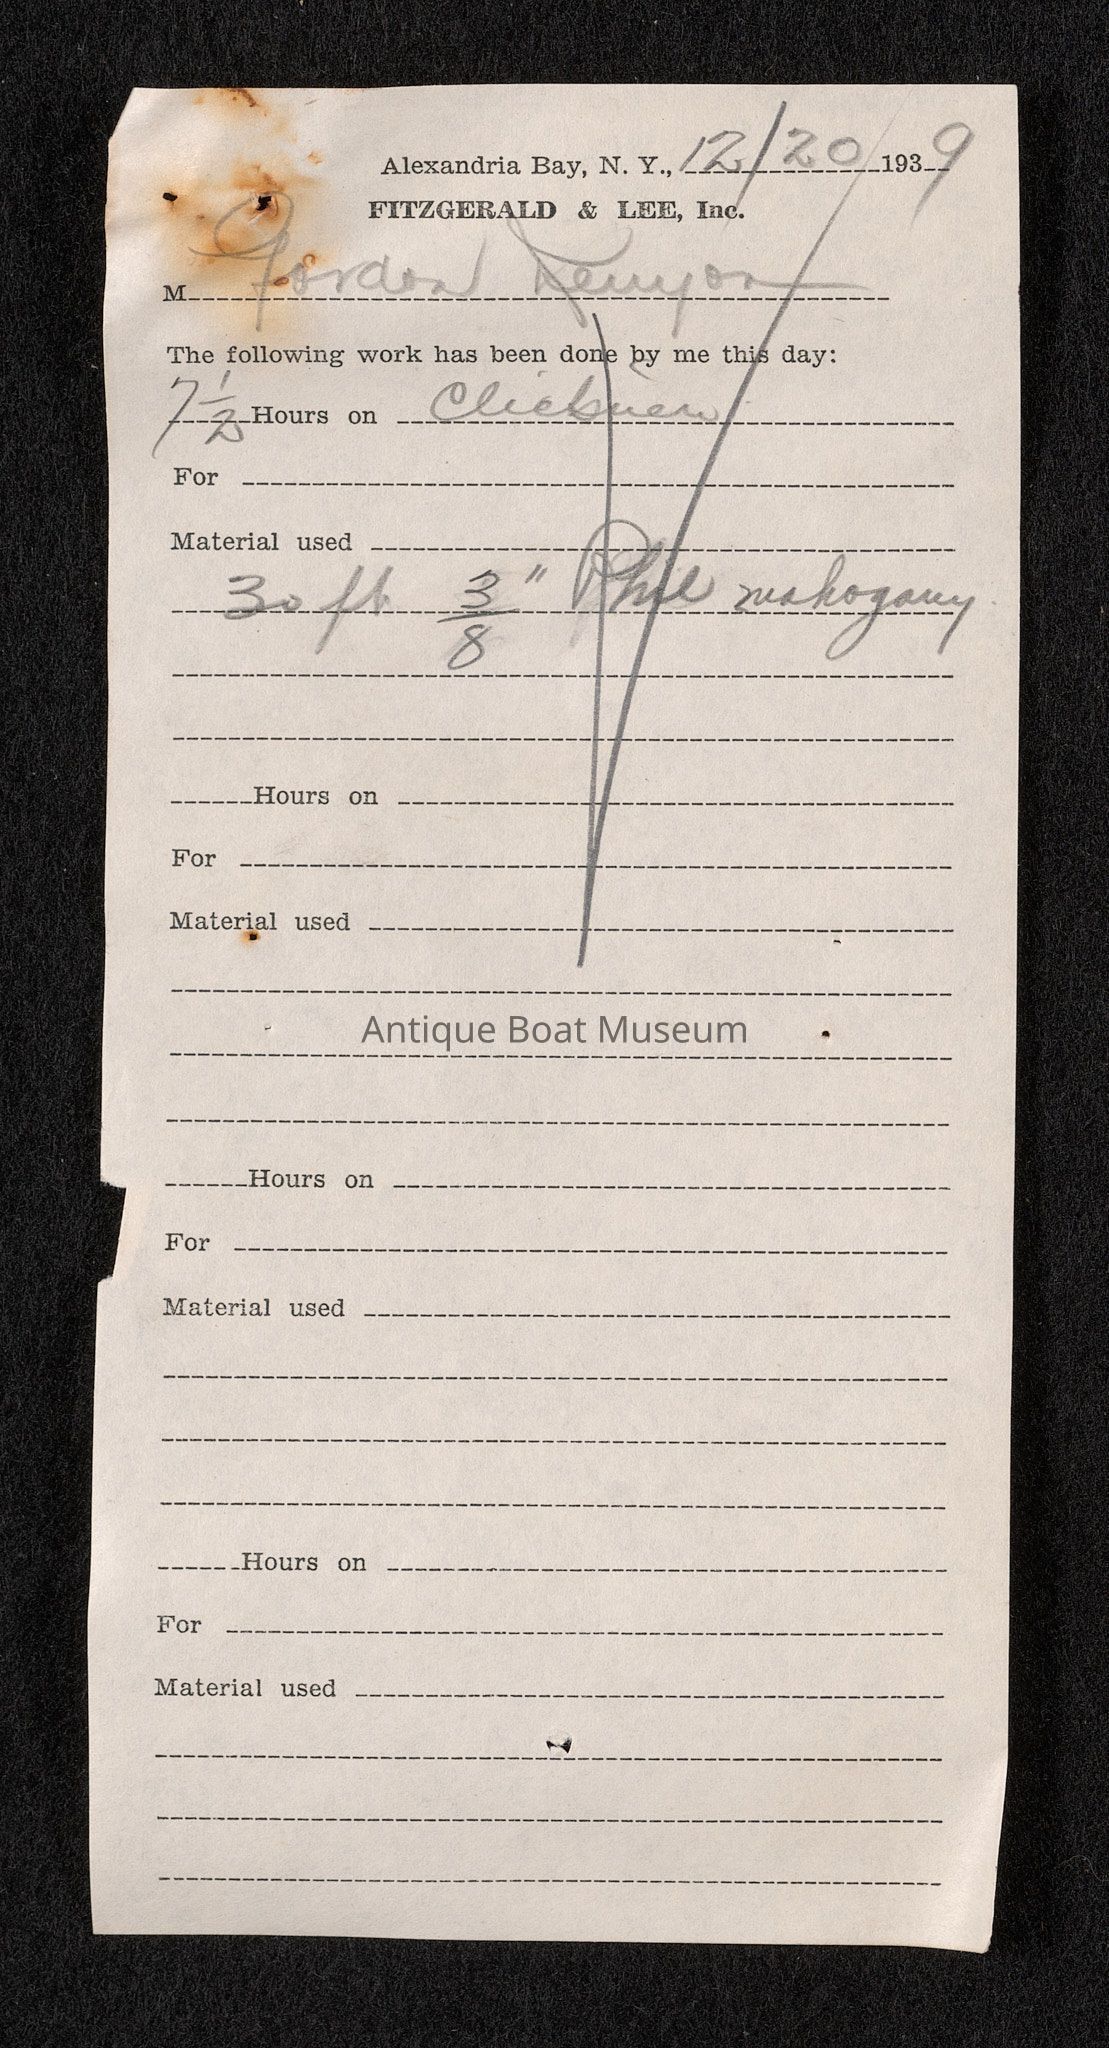 Alexandria Bay, N. Y., 12/20 1939
FITZGERALD & LEE, Inc.
M Gordon Kenyon
The following work has been done by me this day:
7 1/2 Hours on
For
Material used
30 ft 3/8" Phil mahogany
Hours on
For
Material used
Antique Boat Museum
Hours on
For
Material used
Hours on
For
Material used